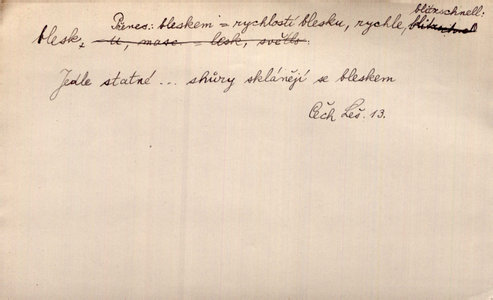 blitzschnell:
Přenes.: bleskem = rychlostí blesku, rychle, blitzschnel
blesk, -u, masc. = lesk, světlo.
Jedle statné ... shůry sklánějí se bleskem
Čech Leš. 13.